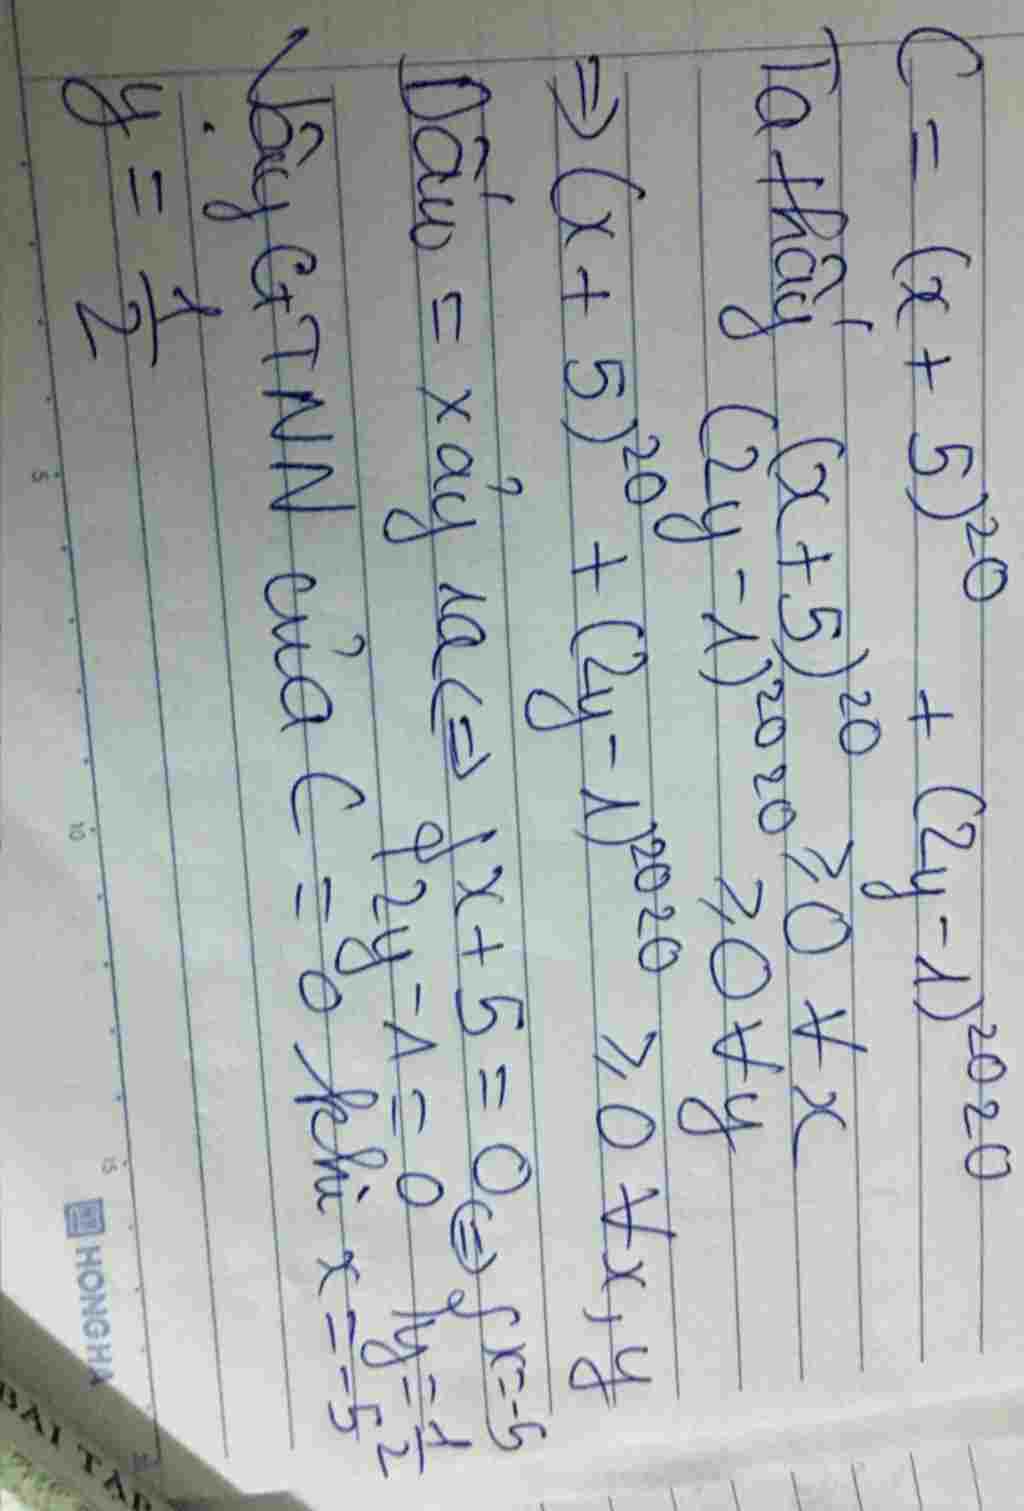 C = (x + 5)²⁰ + (2y - 1)²⁰²⁰
Ta thấy (x + 5)²⁰ ≥ 0 ∀ x
(2y - 1)²⁰²⁰ ≥ 0 ∀ y
=> (x + 5)²⁰ + (2y - 1)²⁰²⁰ ≥ 0 ∀ x, y
Dấu = xảy ra <=> { x + 5 = 0 <=> { x = -5
{ 2y - 1 = 0 { y = 1/2
Vậy GTNN của C = 0 khi x = -5
y = 1/2
5 10 15
HONG HA
BÀI TẬP